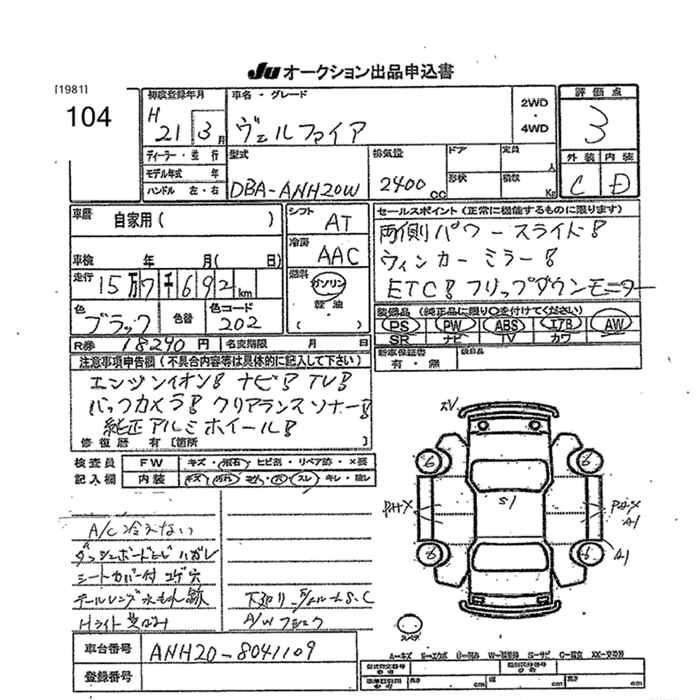 Ju オークション出品申込書
[1981]
104
初度登録年月
H 21 3月
車名・グレード
ヴェルファイア
2WD
・
4WD
評価点
3
ディーラー・並行
モデル年式 年
ハンドル 左・右
型式
DBA-ANH20W
排気量
2400 cc
ドア
定員
人
形状
積載
Kg
外装 内装
C D
車歴
自家用( )
シフト
AT
車検 年 月( 日)
冷房
AAC
走行
15万7千692km
燃料
ガソリン
軽油
( )
色
ブラック
色替
色コード
202
R券 18290円 名変期限 月 日
セールスポイント(正常に機能するものに限ります)
両側パワースライド!
ウィンカーミラー!
ETC! フリップダウンモニター
装備品 (純正品に限り○を付けてください)
PS PW ABS エアB AW
SR ナビ TV カワ
新車保証書
有・無
後日品
注意事項申告欄(不具合内容等は具体的に記入して下さい)
エンジンイオン! ナビ! TV!
バックカメラ! クリアランスソナー!
純正アルミホイール!
修復歴 有[箇所 ]
検査員
記入欄
FW キズ・飛石・ヒビ割・リペア跡・×要
内装 キズ・汚れ・コゲ・穴・スレ・キレ・破レ
A/C冷えない
ダッシュボードヒビ ハガレ
シートカバー付 コゲ穴
テールレンズ水もれ跡
Hライト
下廻り
A/W
6 6
S1
A1
A1
6 6
スペア
A=キズ E=エクボ U=凹み W=補修跡 S=サビ C=腐食 XX=交換済
車台番号
ANH20-8041109
登録番号
長さ cm 幅 cm 高さ cm